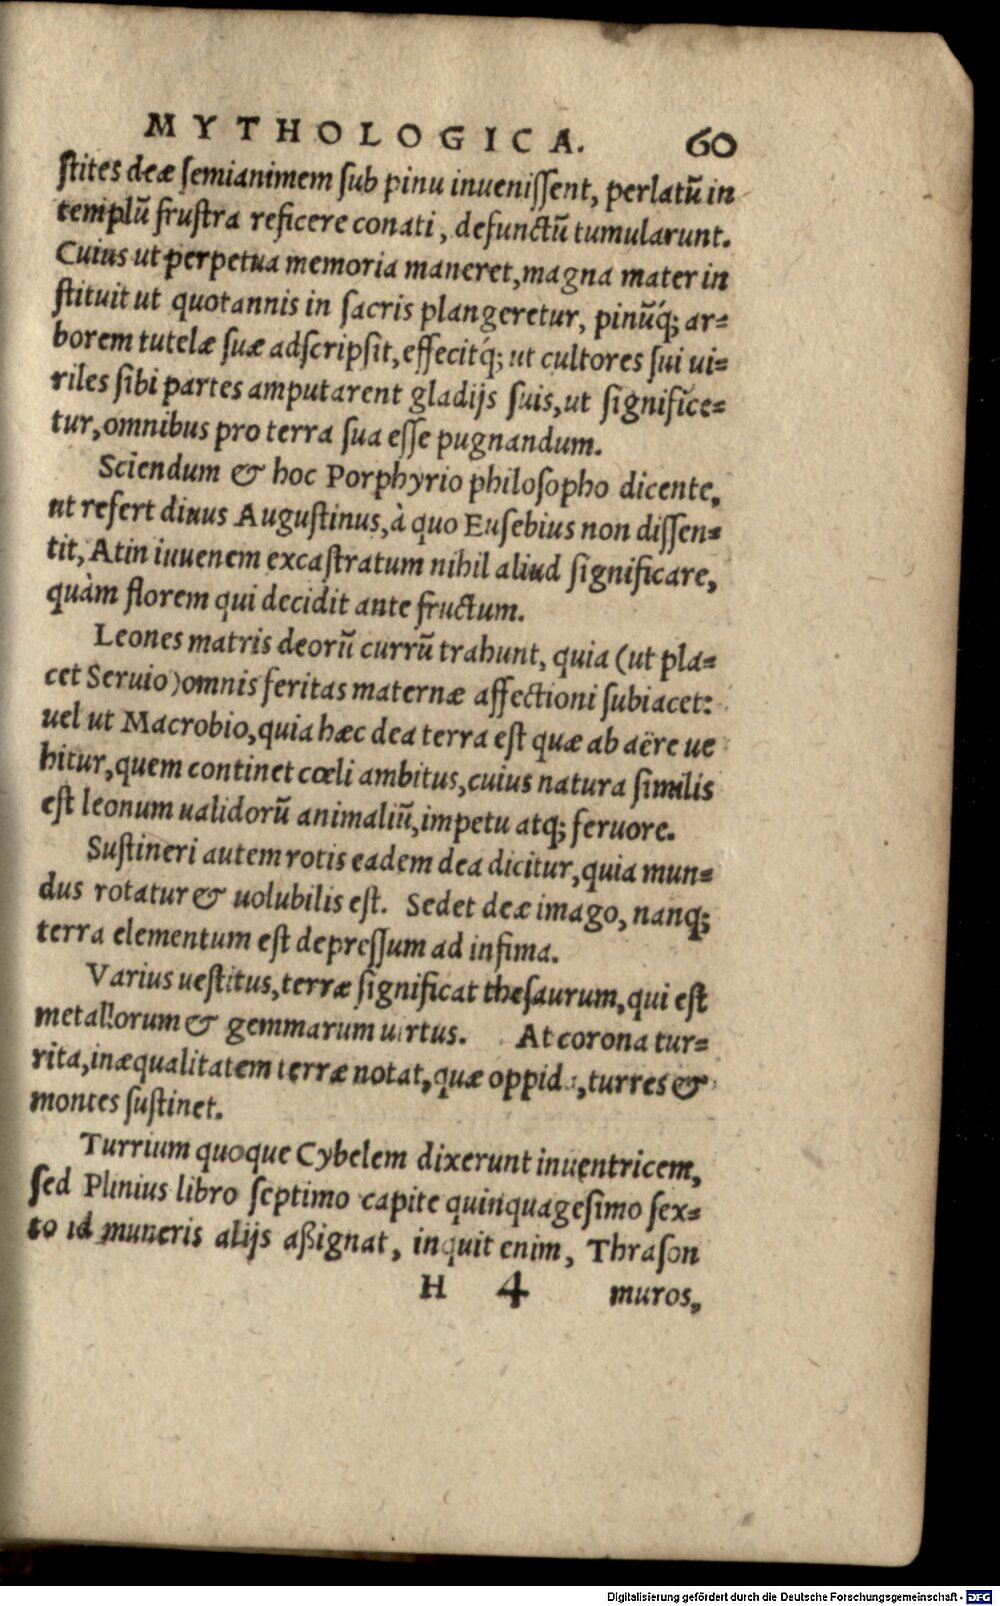 MYTHOLOGICA. 60
ſtites deæ ſemianimem ſub pinu inueniſſent, perlatũ in
templũ fruſtra reficere conati, defunctũ tumularunt.
Cuius ut perpetua memoria maneret, magna mater in
ſtituit ut quotannis in ſacris plangeretur, pinũq́; ar⸗
borem tutelæ ſuæ adſcripſit, effecitq́; ut cultores ſui ui⸗
riles ſibi partes amputarent gladijs ſuis, ut ſignifice⸗
tur, omnibus pro terra ſua eſſe pugnandum.
Sciendum & hoc Porphyrio philoſopho dicente,
ut refert diuus Auguſtinus, à quo Euſebius non diſſen⸗
tit, Atin iuuenem excaſtratum nihil aliud ſignificare,
quàm florem qui decidit ante fructum.
Leones matris deorũ currũ trahunt, quia (ut pla⸗
cet Seruio) omnis feritas maternæ affectioni ſubiacet:
uel ut Macrobio, quia hæc dea terra eſt quæ ab aëre ue
hitur, quem continet cœli ambitus, cuius natura ſimilis
eſt leonum ualidorũ animaliũ, impetu atq; feruore.
Suſtineri autem rotis eadem dea dicitur, quia mun⸗
dus rotatur & uolubilis eſt. Sedet deæ imago, nanq;
terra elementum eſt depreſſum ad infima.
Varius ueſtitus, terræ ſignificat theſaurum, qui eſt
metallorum & gemmarum uirtus. At corona tur⸗
rita, inæqualitatem terræ notat, quæ oppida, turres &
montes ſuſtinet.
Turrium quoque Cybelem dixerunt inuentricem,
ſed Plinius libro ſeptimo capite quinquageſimo ſex⸗
to id muneris alijs aßignat, inquit enim, Thraſon
H 4 muros,
Digitalisierung gefördert durch die Deutsche Forschungsgemeinschaft - DFG